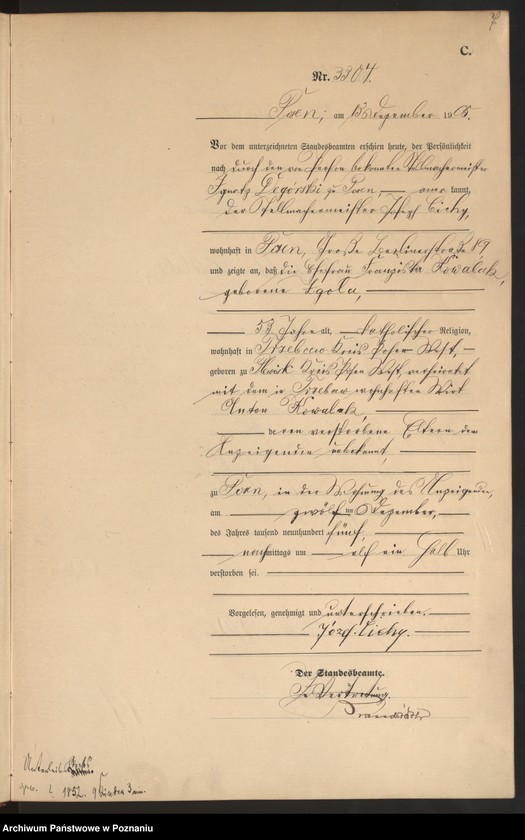 7
C.
Nr. 3304.
Posen, am 13 Dezember 1905.
Vor dem unterzeichneten Standesbeamten erschien heute, der Persönlichkeit
nach durch den von Person bekannten Stellmachermeister
Ignatz Degórski zu Posen, anerkannt,
der Stellmachermeister Joseph Cichy,
wohnhaft in Posen, Große Berlinerstraße 89
und zeigte an, daß die Ehefrau Franziska Kowalak,
geborene Zgola,
53 Jahre alt, katholischer Religion,
wohnhaft in Trzebaw Kreis Posen West,
geboren zu Kreis Posen West, verheiratet
mit dem in Trzebaw wohnhaften Wirt
Anton Kowalak,
deren verstorbene Eltern dem
Anzeigenden unbekannt,
zu Posen, in der Wohnung des Anzeigenden,
am zwölften Dezember,
des Jahres tausend neunhundert fünf,
nachmittags um elf ein halb Uhr
verstorben sei.
Vorgelesen, genehmigt und unterschrieben.
Józef Cichy.
Der Standesbeamte.
In Vertretung.
1852.
Archiwum Państwowe w Poznaniu